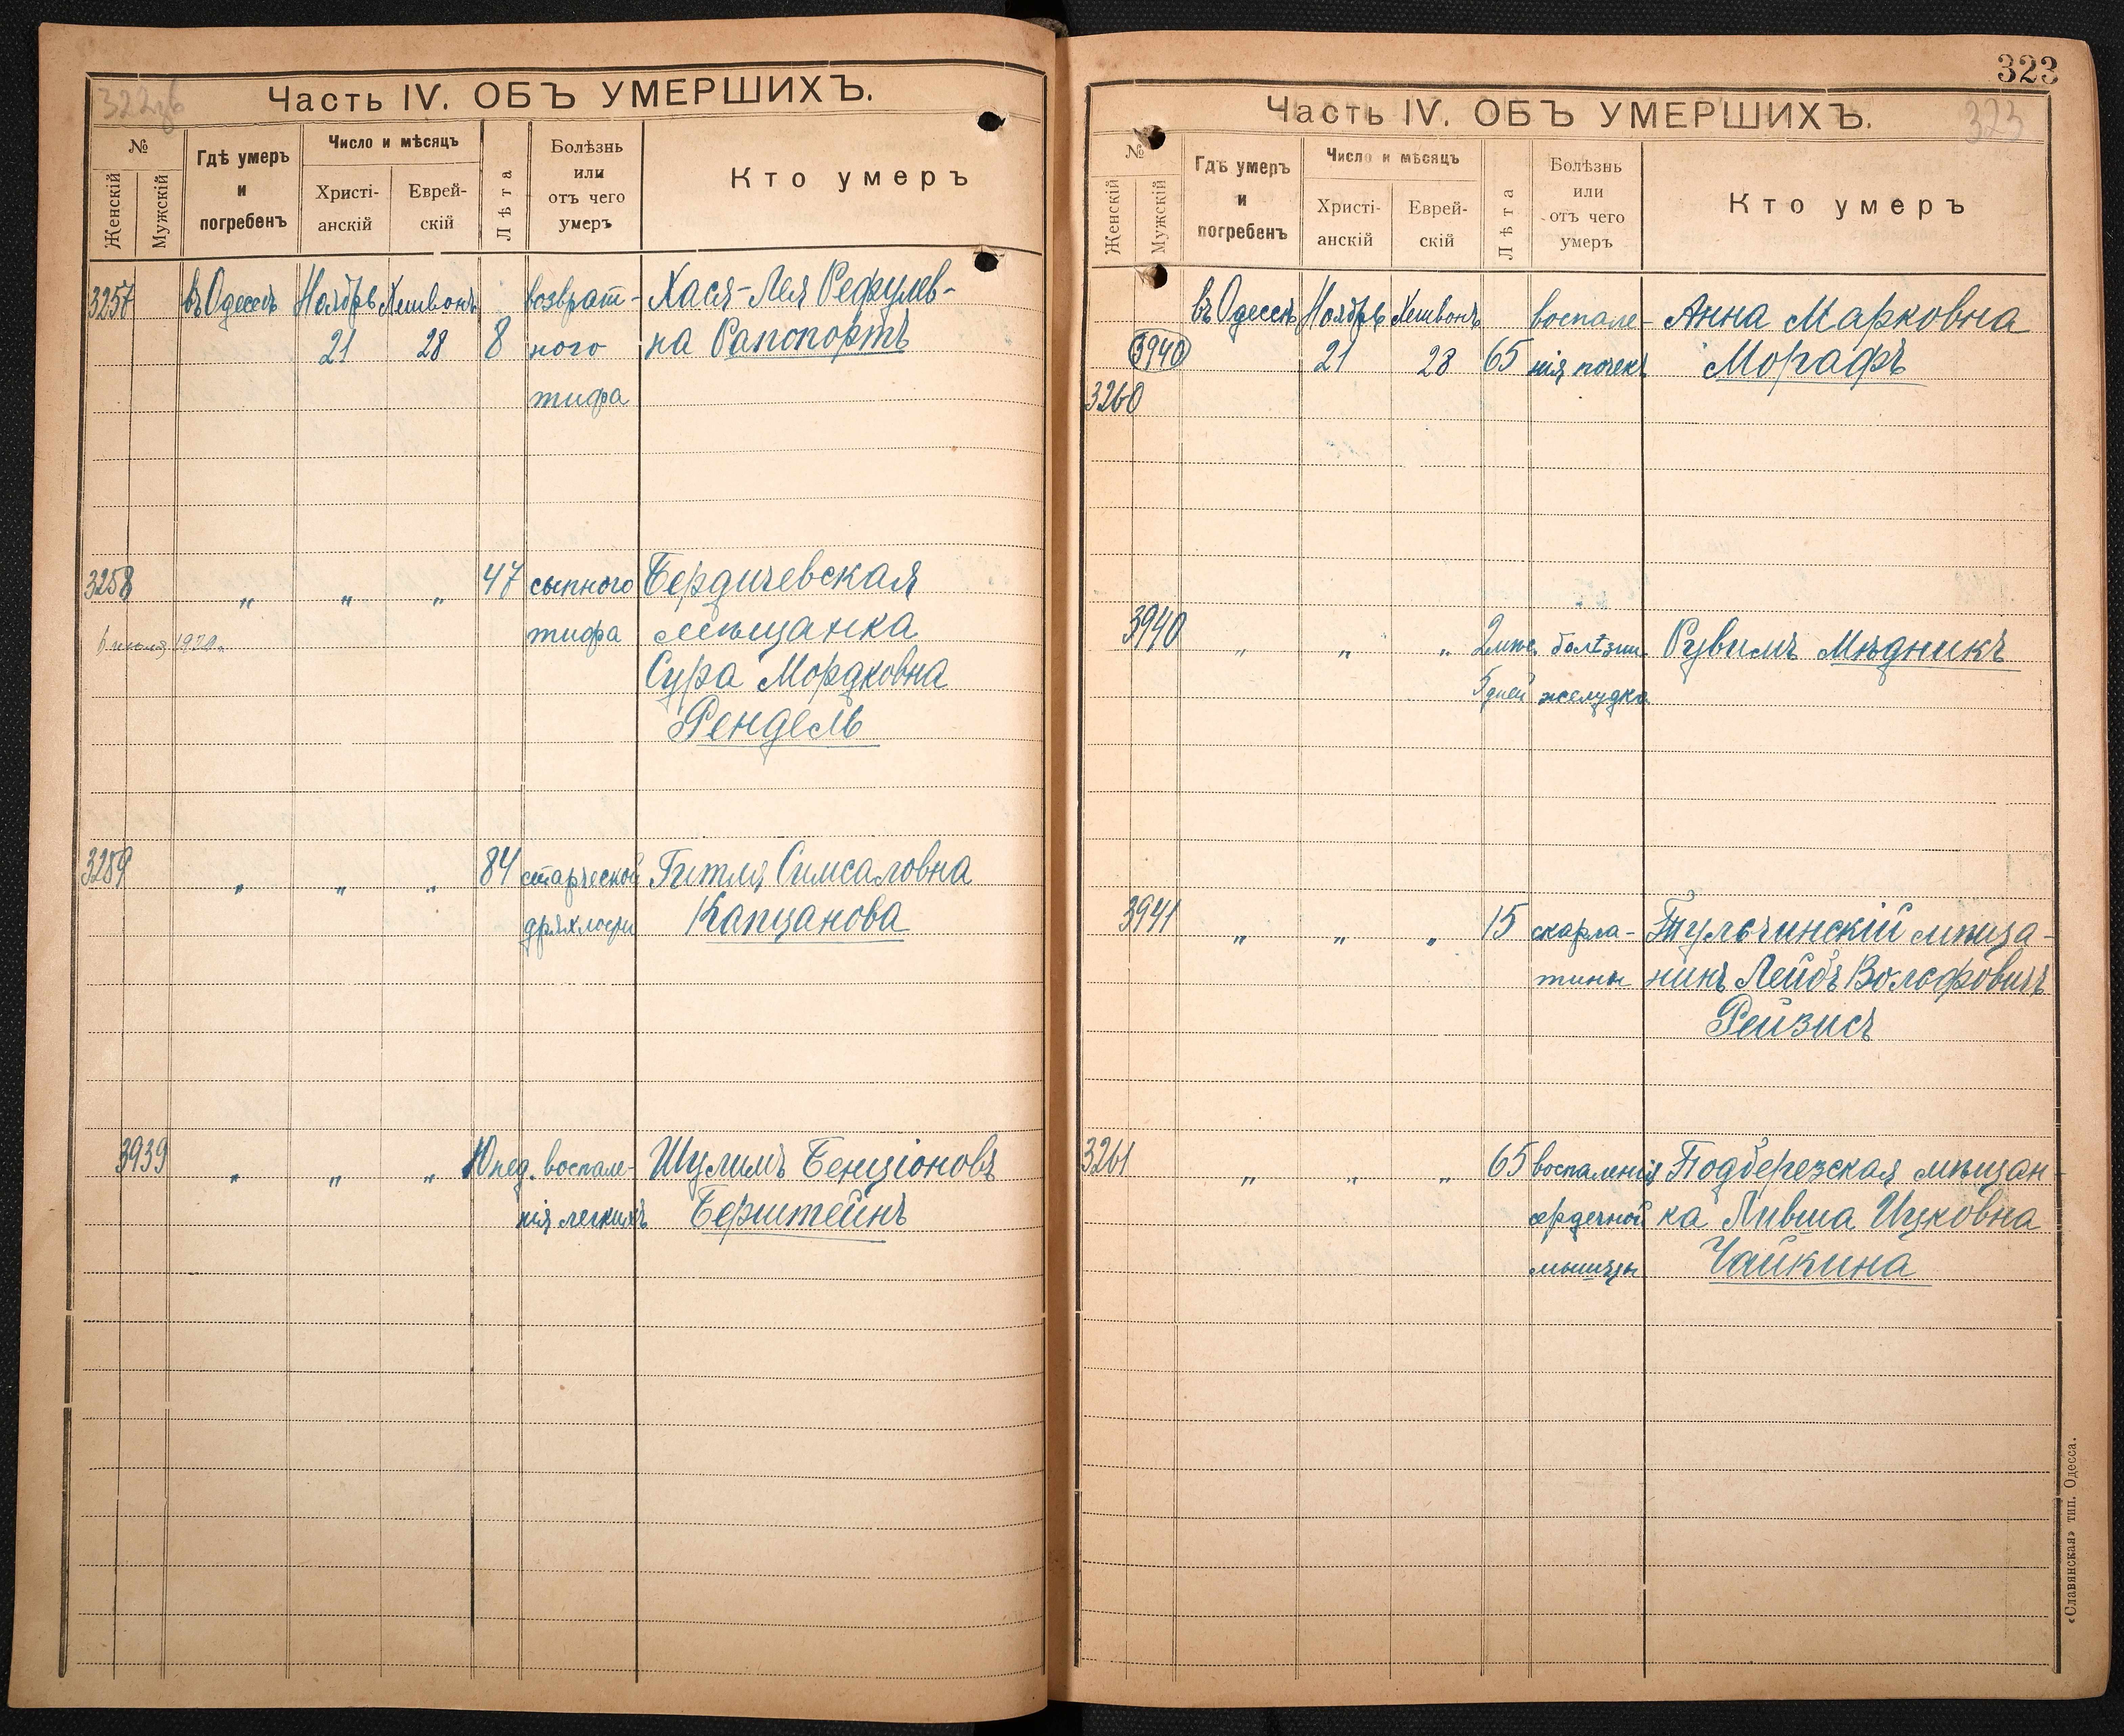 Часть IV. ОБЪ УМЕРШИХЪ.
№
Женскій
Мужскій
Гдѣ умеръ
и
погребенъ
Число и мѣсяцъ
Христі-
анскій
Еврей-
скій
Лѣта
Болѣзнь
или
отъ чего
умеръ
Кто умеръ
3257 въ Одессѣ Ноябрь Хешвонъ возврат- Хася-Лея Рефулев-
21 28 8 ного на Рапопортъ
тифа
3258 „ „ „ 47 сыпного Бердичевская
6 1920 тифа мѣщанка
Сура Мордковна
Рендель
3259 „ „ „ 84 старческой Гитля Симсаловна
дряхлости Капцанова
3939 „ „ „ 10 нед. воспале- Шулимъ Бенціоновъ
нія легкихъ Берштейнъ
323
Часть IV. ОБЪ УМЕРШИХЪ.
323
№
Женскій
Мужскій
Гдѣ умеръ
и
погребенъ
Число и мѣсяцъ
Христі-
анскій
Еврей-
скій
Лѣта
Болѣзнь
или
отъ чего
умеръ
Кто умеръ
въ Одессѣ Ноябрь Хешвонъ воспале- Анна Марковна
3940 21 28 65 нія почекъ Морафъ
3260
3940 „ „ „ 2 мѣс. болѣзни Рувимъ Мѣдникъ
5 дней желудка
3941 „ „ „ 15 скарла- Тульчинскій мѣща-
тины нинъ Лейбъ Вольфовичъ
Рейзисъ
3261 „ „ „ 65 воспаленія Подберезская мѣщан-
сердечной ка Ливша Ицковна
мышцы Чайкина
«Славянская» тип. Одесса.